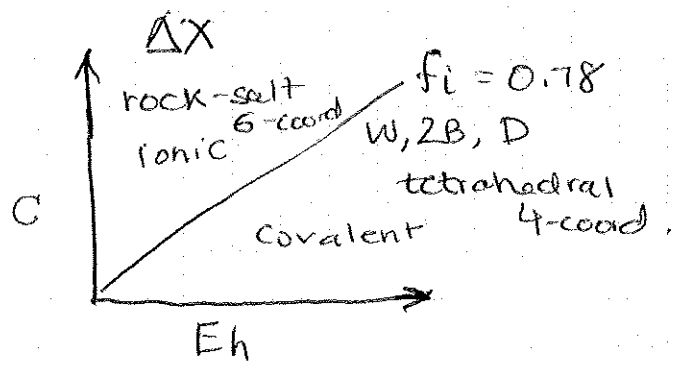 ΔX
rock-salt
6-coord
ionic
fi = 0.78
W, 2B, D
tetrahedral
4-coord.
C
covalent
Eh